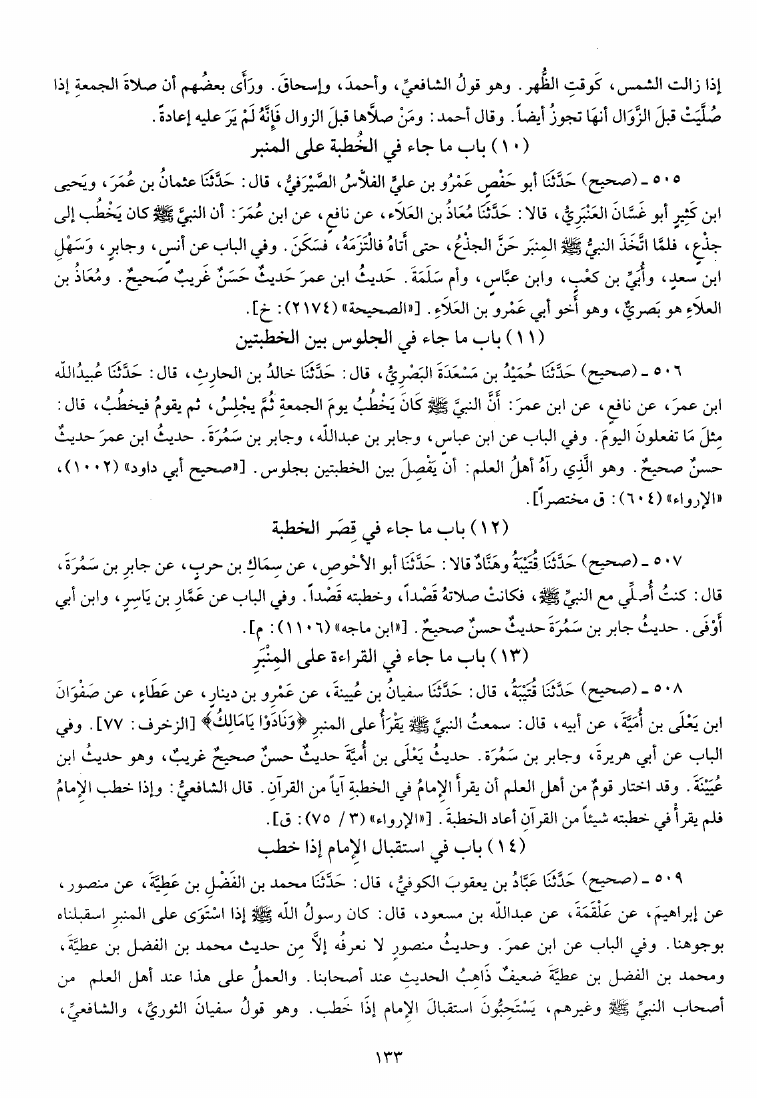 إذا زالت الشمس، كَوقتِ الظُّهر. وهو قولُ الشافعيِّ، وأحمدَ، وإسحاقَ. ورَأَى بعضُهم أن صلاةَ الجمعةِ إذا
صُلِّيَتْ قبلَ الزَّوَال أنهَا تجوزُ أيضاً. وقال أحمد: ومَنْ صلاَّها قبلَ الزوال فَإِنَّهُ لَمْ يَرَ عليه إعادةً.
(١٠) باب ما جاء في الخُطبة على المنبر
٥٠٥ - (صحيح) حَدَّثَنَا أبو حَفْصٍ عَمْرُو بن عليٍّ الفلاَّسُ الصَّيْرَفيُّ، قال: حَدَّثَنَا عثمانُ بن عُمَرَ، ويَحيى
ابن كَثِيرٍ أبو غَسَّانَ العَنْبَرِيُّ، قالا: حَدَّثَنَا مُعَاذُ بن العَلَاء، عن نافعٍ، عن ابن عُمَرَ: أن النبيَّ ﷺ كان يَخْطُب إلى
جِذْعٍ، فلمَّا اتَّخَذَ النبيُّ ﷺ المِنبَر حَنَّ الجذْعُ، حتى أتَاهُ فالْتَزَمَهُ، فسَكَنَ. وفي الباب عن أنسٍ، وجابرٍ، وَسَهْلِ
ابن سعدٍ، وأُبَيِّ بن كعْبٍ، وابن عبَّاسٍ، وأم سَلَمَةَ. حَديثُ ابن عمرَ حَديثٌ حَسَنٌ غَريبٌ صَحيحٌ. ومُعَاذُ بن
العلاَءِ هو بَصريٌّ، وهو أَخو أبي عَمْرو بن العَلاَءِ. [«الصحيحة» (٢١٧٤): خ].
(١١) باب ما جاء في الجلوس بين الخطبتين
٥٠٦ - (صحيح) حَدَّثَنَا حُمَيْدُ بن مَسْعَدَةَ البَصْرِيُّ، قال: حَدَّثَنَا خالدُ بن الحارثِ، قال: حَدَّثَنَا عُبيدُالله
ابن عمرَ، عن نافعٍ، عن ابن عمرَ: أَنَّ النبيَّ ﷺ كَانَ يَخْطُبُ يومَ الجمعةِ ثُمَّ يجلِسُ، ثم يقومُ فيخطُبُ، قال:
مِثلَ مَا تفعلونَ اليومَ. وفي الباب عن ابن عباسٍ، وجابر بن عبدالله، وجابر بن سَمُرَةَ. حديثُ ابن عمرَ حديثٌ
حسنٌ صحيحٌ. وهو الَّذِي رآهُ أهلُ العلم: أن يَفْصِلَ بين الخطبتين بجلوس. [«صحيح أبي داود» (١٠٠٢)،
«الإرواء» (٦٠٤): ق مختصراً].
(١٢) باب ما جاء في قِصَرِ الخطبة
٥٠٧ - (صحيح) حَدَّثَنَا قُتَيْبَةُ وهَنَّادٌ قالا: حَدَّثَنَا أبو الأحْوصِ، عن سِمَاكِ بن حربٍ، عن جابرِ بن سَمُرَةَ،
قال: كنتُ أُصلِّي مع النبيِّ ﷺ، فكانتْ صلاتهُ قَصْداً، وخطبته قَصْداً. وفي الباب عن عَمَّار بن يَاسِرٍ، وابن أبي
أوْفَى. حديثُ جابر بن سَمُرَةَ حديثٌ حسنٌ صحيحٌ. [«ابن ماجه» (١١٠٦): م].
(١٣) باب ما جاء في القراءة على المِنْبَرِ
٥٠٨ - (صحيح) حَدَّثَنَا قُتَيْبَةُ، قال: حَدَّثَنَا سفيانُ بن عُيينةَ، عن عَمْرِو بن دينارٍ، عن عَطَاءٍ، عن صَفْوَانَ
ابن يَعْلَى بن أُمَيَّةَ، عن أبيه، قال: سمعتُ النبيَّ ﷺ يَقْرَأُ على المنبرِ ﴿وَنَادَوْا يَامَالِكُ﴾ [الزخرف: ٧٧]. وفي
الباب عن أبي هريرةَ، وجابر بن سَمُرَة. حديثُ يَعْلَى بن أُمَيَّةَ حديثٌ حسنٌ صحيحٌ غريبٌ، وهو حديثُ ابن
عُيَيْنَةَ. وقد اختار قومٌ من أهل العلم أن يقرأَ الإمامُ في الخطبةِ آياً من القرآنِ. قال الشافعيُّ: وإذا خطب الإمامُ
فلم يقرأْ في خطبته شيئاً من القرآنِ أعاد الخطبةَ. [«الإرواء» (٣ / ٧٥): ق].
(١٤) باب في استقبال الإمام إذا خطب
٥٠٩ - (صحيح) حَدَّثَنَا عَبَّادُ بن يعقوبَ الكوفيُّ، قال: حَدَّثَنَا محمد بن الفَضْلِ بن عَطِيَّةَ، عن منصور،
عن إبراهيمَ، عن عَلْقَمَةَ، عن عبدالله بن مسعود، قال: كان رسولُ الله ﷺ إذا اسْتَوَى على المنبرِ اسقبلناه
بوجوهنا. وفي الباب عن ابن عمرَ. وحديثُ منصورٍ لا نعرفُه إلاَّ مِن حديث محمد بن الفضل بن عطيَّةَ،
ومحمد بن الفضل بن عطيَّةَ ضعيفٌ ذَاهِبُ الحديثِ عند أصحابنا. والعملُ على هذا عند أهل العلم من
أصحاب النبيِّ ﷺ وغيرهم، يَسْتَحِبُّونَ استقبالَ الإمام إذَا خَطب. وهو قولُ سفيانَ الثوريِّ، والشافعيِّ،
١٣٣